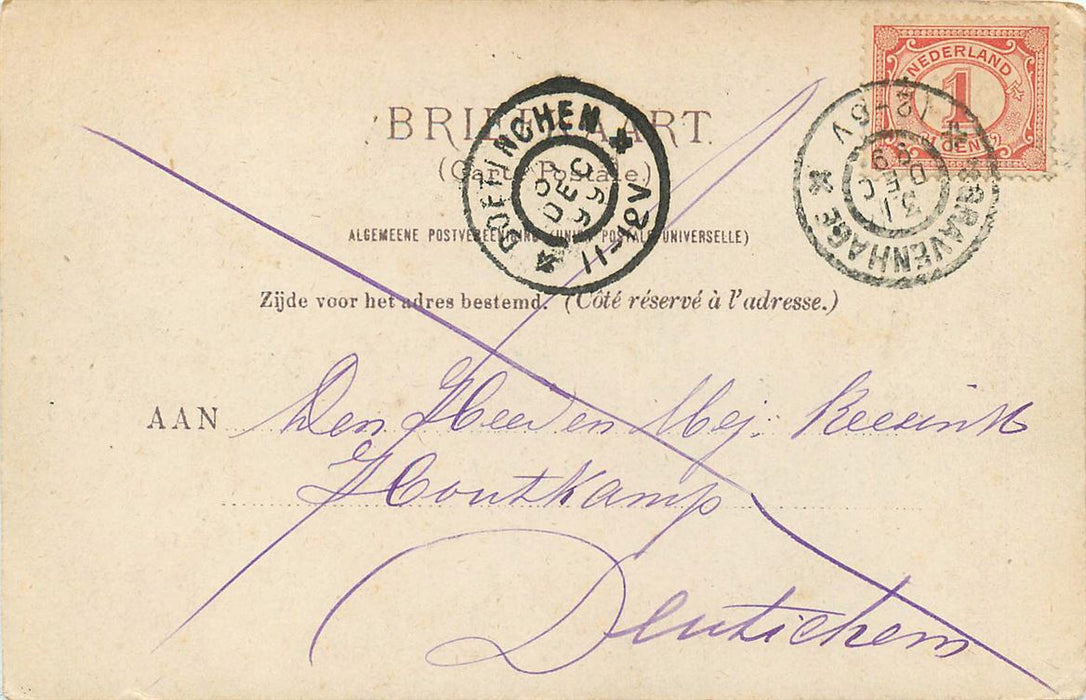 NEDERLAND
1
CENT
BRIEFKAART.
(Carte Postale)
ALGEMEENE POSTVEREENIGING (UNION POSTALE UNIVERSELLE)
Zijde voor het adres bestemd. (Côté réservé à l'adresse.)
DOETINCHEM
DEC
99
11-12V
'SGRAVENHAGE
12-6V
31
DEC
99
AAN Den Heer en Mej: Reesink
Houtkamp
Deutichem